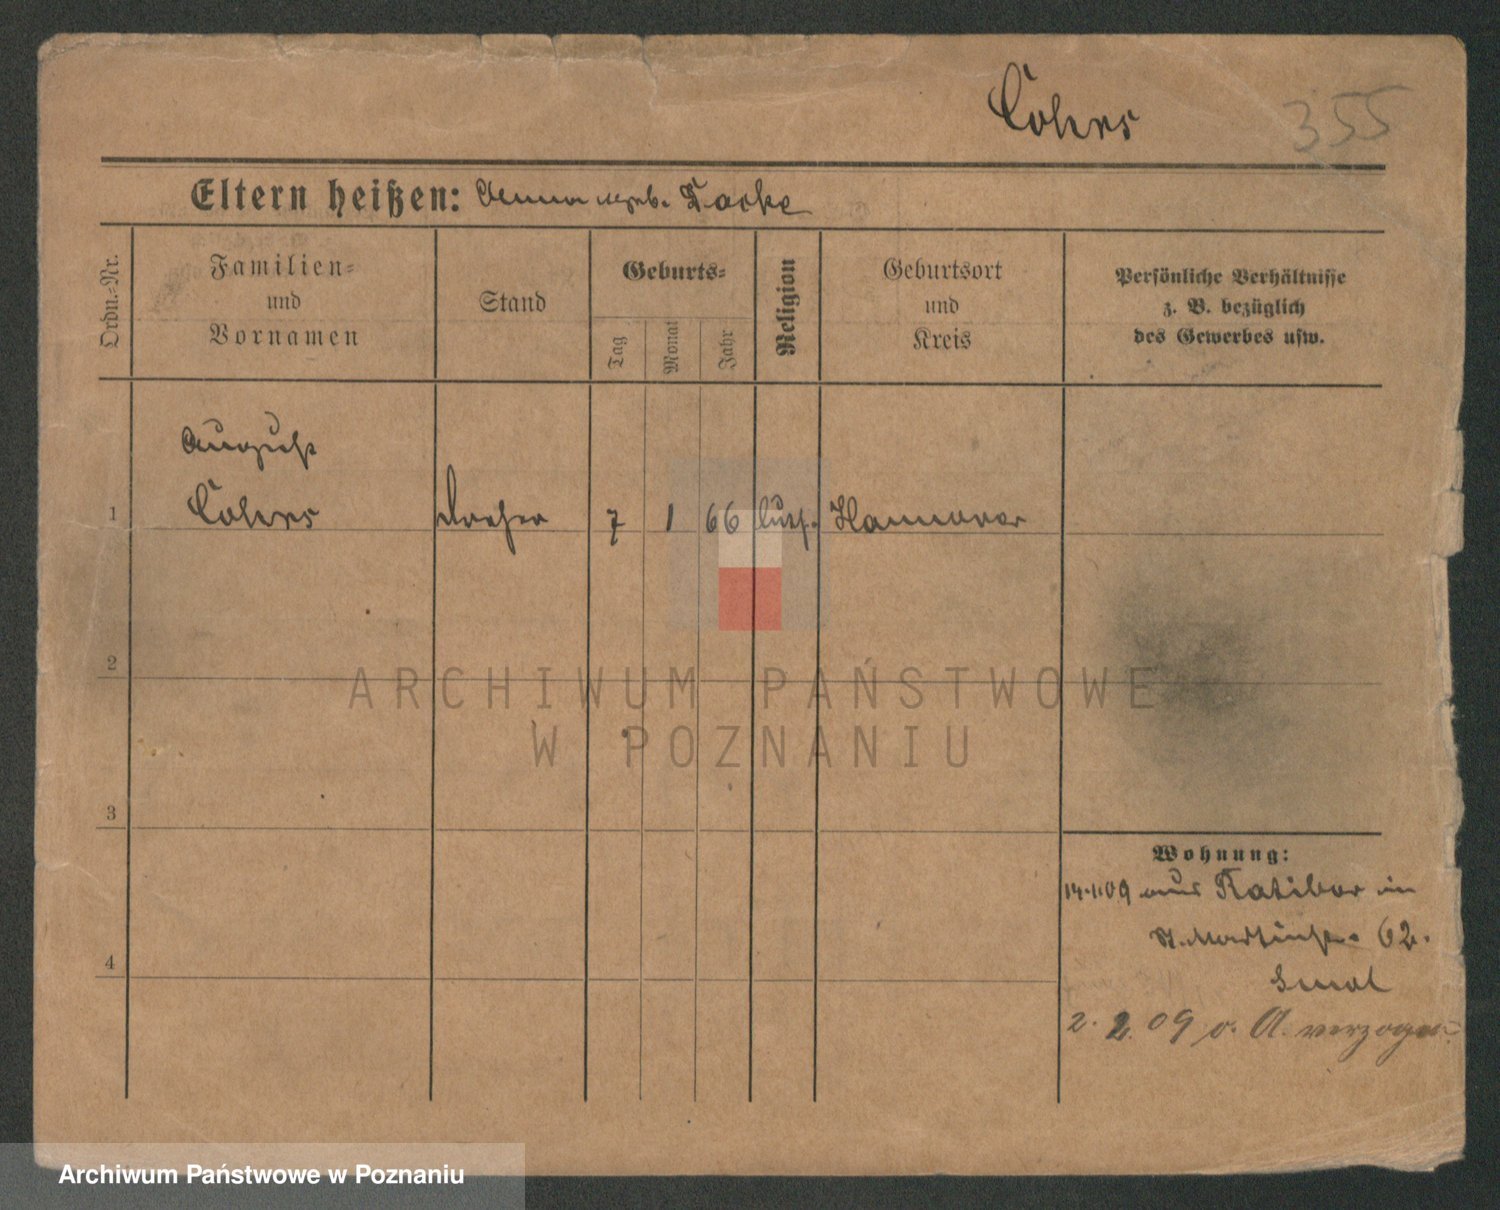 Cohrs 355
Eltern heißen: Anna geb. Tacke
Ordn.-Nr.
Familien-
und
Vornamen
Stand
Geburts-
Tag
Monat
Jahr
Religion
Geburtsort
und
Kreis
Persönliche Verhältnisse
z. B. bezüglich
des Gewerbes usw.
August
1 Cohrs 7 1 66 luth. Hannover
2
3
4
Wohnung:
14.1.09 aus Ratibor in
St. Martinstr. 62.
2. 2. 09 o. A. verzogen.
ARCHIWUM PAŃSTWOWE
W POZNANIU
Archiwum Państwowe w Poznaniu